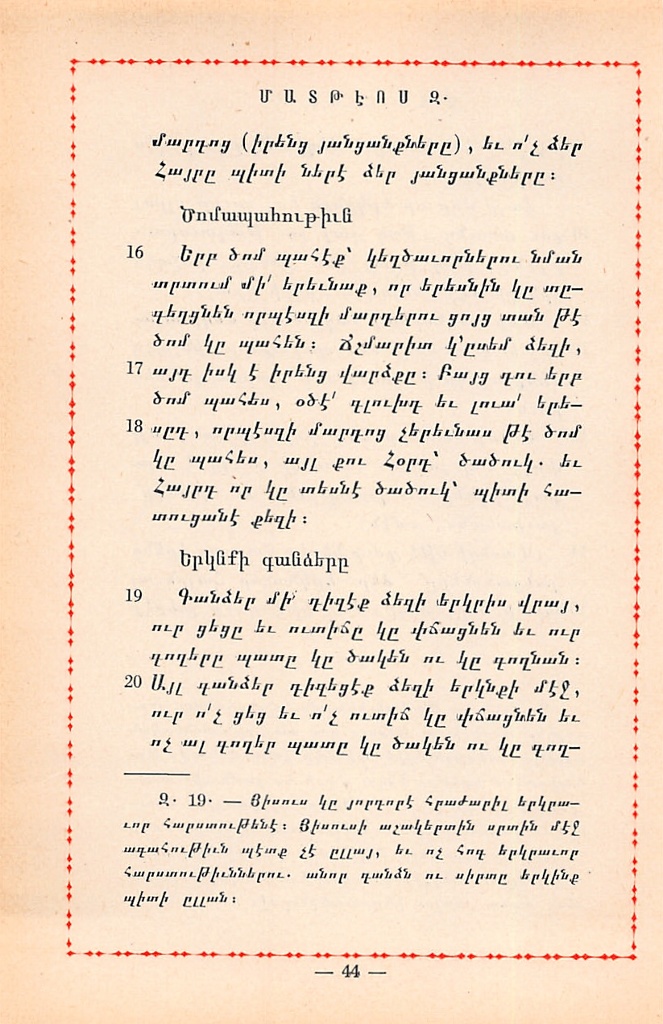 ՄԱՏԹԷՈՍ Զ.
մարդոց (իրենց յանցանքները), եւ ո՛չ ձեր
Հայրը պիտի ներէ ձեր յանցանքները։
Ծոմապահութիւն
16 Երբ ծոմ պահէք՝ կեղծաւորներու նման
տրտում մի՛ երեւնաք, որ երեսնին կը տը–
գեղցնեն որպէսզի մարդերու ցոյց տան թէ
ծոմ կը պահեն։ Ճշմարիտ կ՚ըսեմ ձեզի,
17 այդ իսկ է իրենց վարձքը։ Բայց դու երբ
ծոմ պահես, օծէ՛ գլուխդ եւ լուա՛ երե–
18 սըդ, որպէսզի մարդոց չերեւնաս թէ ծոմ
կը պահես, այլ քու Հօրդ՝ ծածուկ. եւ
Հայրդ որ կը տեսնէ ծածուկ՝ պիտի հա–
տուցանէ քեզի։
Երկնքի գանձերը
19 Գանձեր մի՛ դիզէք ձեզի երկրիս վրայ,
ուր ցեցը եւ ուտիճը կը փճացնեն եւ ուր
գողերը պատը կը ծակեն ու կը գողնան։
20 Այլ գանձեր դիզեցէք ձեզի երկնքի մէջ,
ուր ո՛չ ցեց եւ ո՛չ ուտիճ կը փճացնեն եւ
ոչ ալ գողեր պատը կը ծակեն ու կը գող–
Զ. 19. — Յիսուս կը յորդորէ հրաժարիլ երկրա–
ւոր հարստութենէ։ Յիսուսի աշակերտին սրտին մէջ
ագահութիւն պէտք չէ ըլլայ, եւ ոչ հոգ երկրաւոր
հարստութիւններու. անոր գանձն ու սիրտը երկինք
պիտի ըլլան։
— 44 —